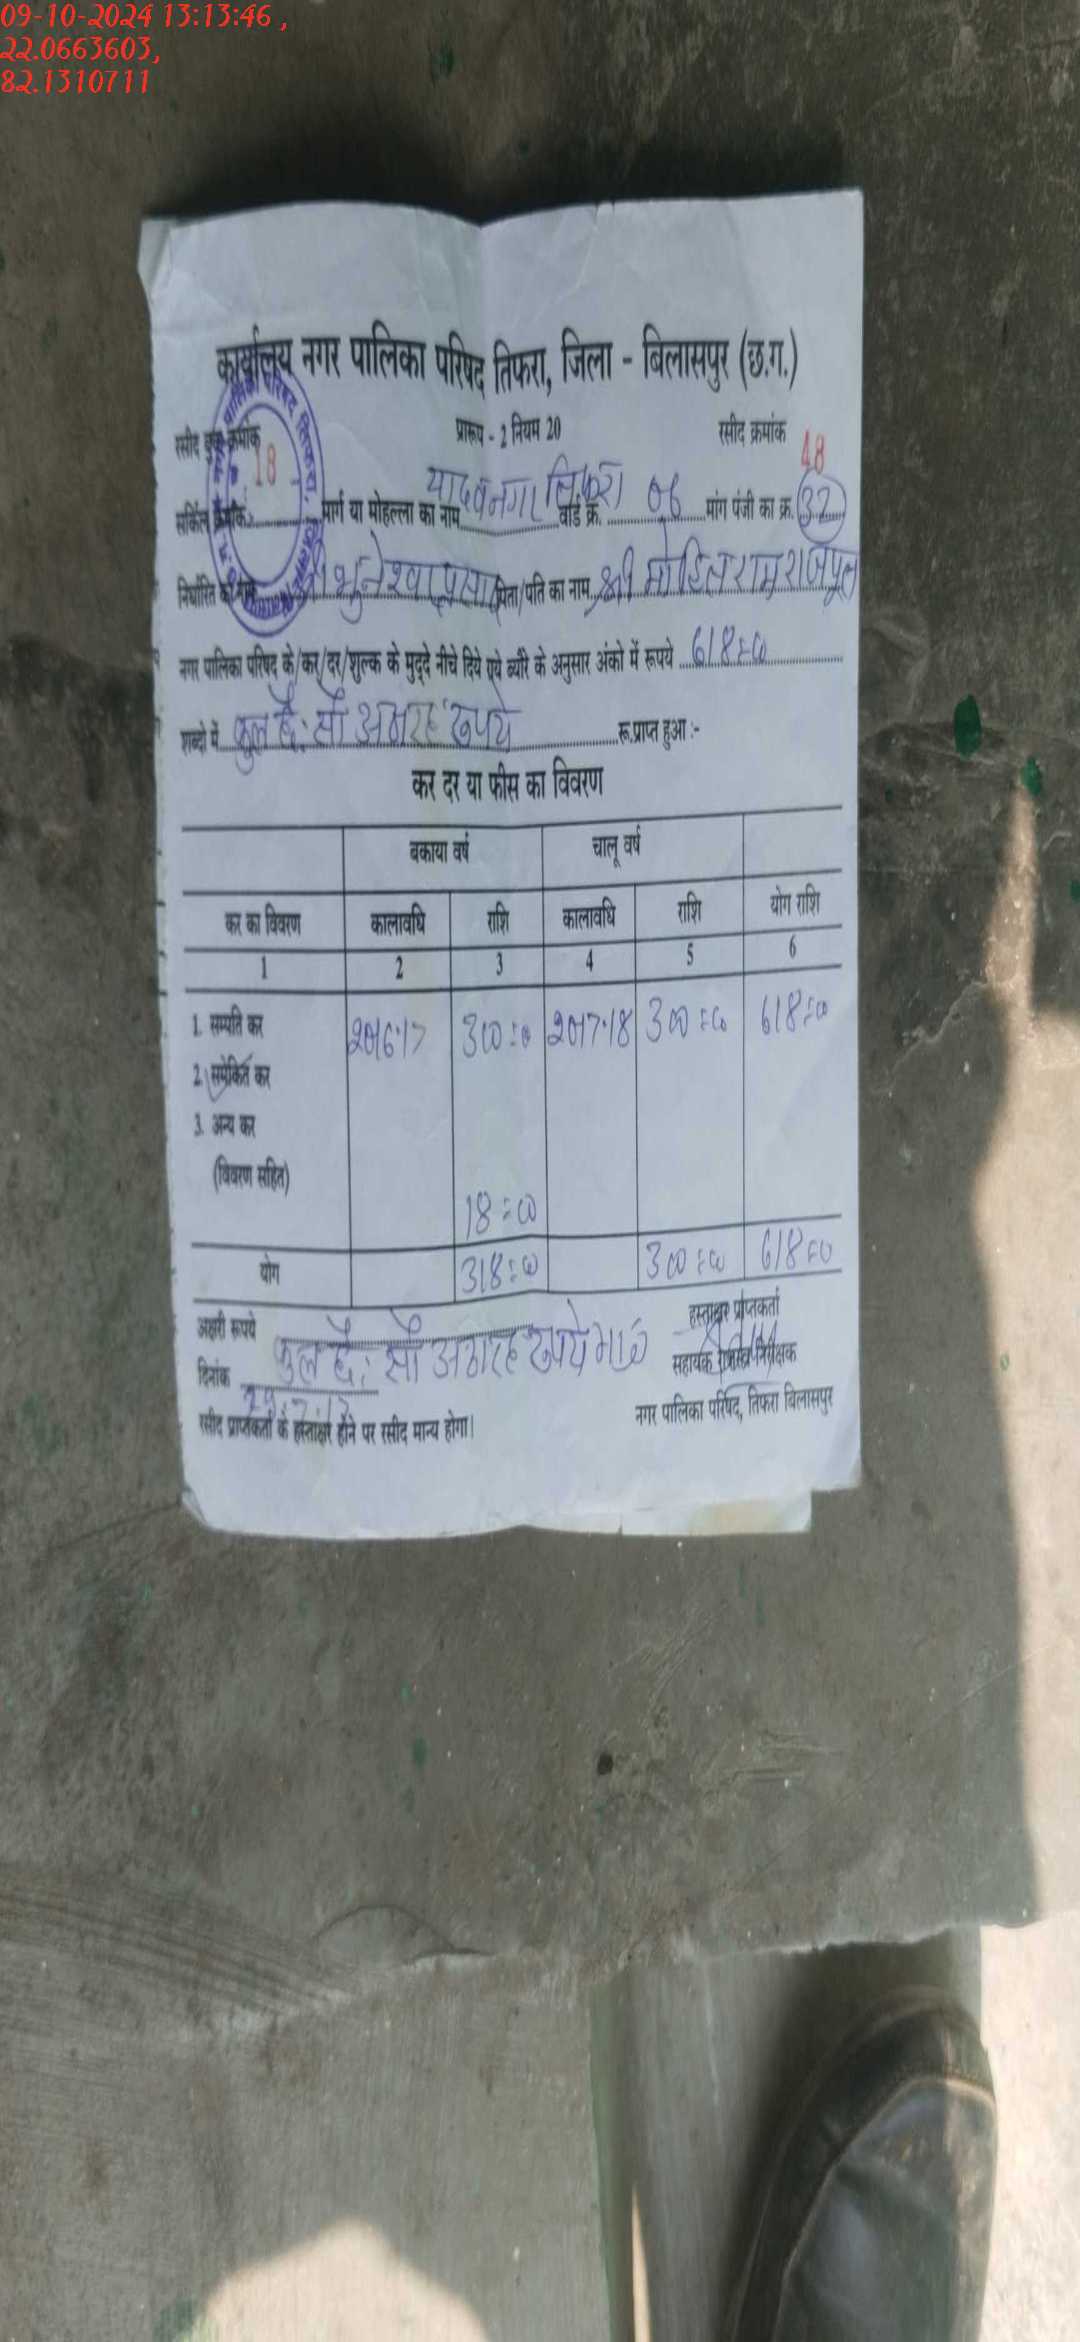 09-10-2024 13:13:46 ,
22.0663603,
82.1310711
कार्यालय नगर पालिका परिषद तिफरा, जिला - बिलासपुर (छ.ग.)
रसीद बुक क्रमांक 18 प्रारूप - 2 नियम 20 रसीद क्रमांक 48
सर्किल क्रमांक मार्ग या मोहल्ला का नाम यादवनगर तिफरा वार्ड क्र. 06 मांग पंजी का क्र. 32
निर्धारित का नाम पिता/पति का नाम श्री मोहितराम राजपूत
नगर पालिका परिषद के/कर/दर/शुल्क के मुद्दे नीचे दिये गये ब्यौरे के अनुसार अंको में रूपये 618=00
शब्दो में कुल छै: सौ अठारह रूपये रू.प्राप्त हुआ :-
कर दर या फीस का विवरण
बकाया वर्ष चालू वर्ष
कर का विवरण कालावधि राशि कालावधि राशि योग राशि
1 2 3 4 5 6
1. सम्पति कर 2016-17 300=00 2017-18 300=00 618=00
2. समेकित कर
3. अन्य कर
(विवरण सहित)
18=00
योग 318=00 300=00 618=00
अक्षरी रूपये कुल छै: सौ अठारह रूपये मात्र हस्ताक्षर प्राप्तकर्ता
दिनांक सहायक राजस्व निरीक्षक
नगर पालिका परिषद, तिफरा बिलासपुर
रसीद प्राप्तकर्ता के हस्ताक्षर होने पर रसीद मान्य होगा।